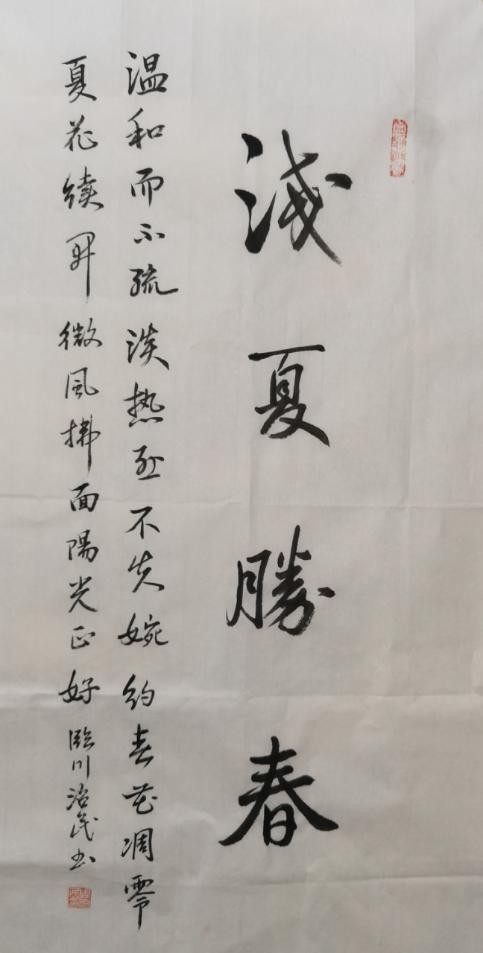 淺夏勝春
温和而不疏淡热烈不失婉约春花凋零
夏花續開微風拂面陽光正好
臨川治民书